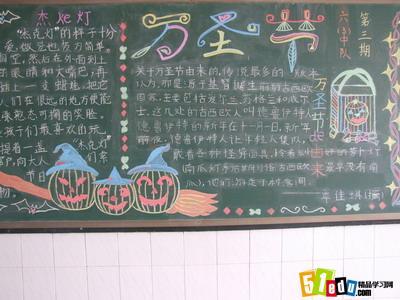 杰克灯
“杰克灯”的样子十分
爱,做法也极为简单。
掏空,然后在外面刻上
眼睛和大嘴巴,再
上一支蜡烛,把它
人们在很远的地方便能
憨态可掬的笑脸。
孩子们最喜欢的玩
提着一盏“杰克灯”们索
向大人
节日
物。
万圣节
六(3)中队
第三期
万圣节的由来
关于万圣节由来的,传说最多的版本
认为,那是源于基督诞生前的古西欧
国家,主要包括爱尔兰、苏格兰和威尔
士。这几处的古西欧人叫德鲁伊特人
德鲁伊特的新年在十一月一日,新年
夜,德鲁伊特人让年轻人集队,
戴着各种怪异面具,拎着刻好的萝卜灯
南瓜灯
他们游走于村落间。
51edu精品学习网
.com